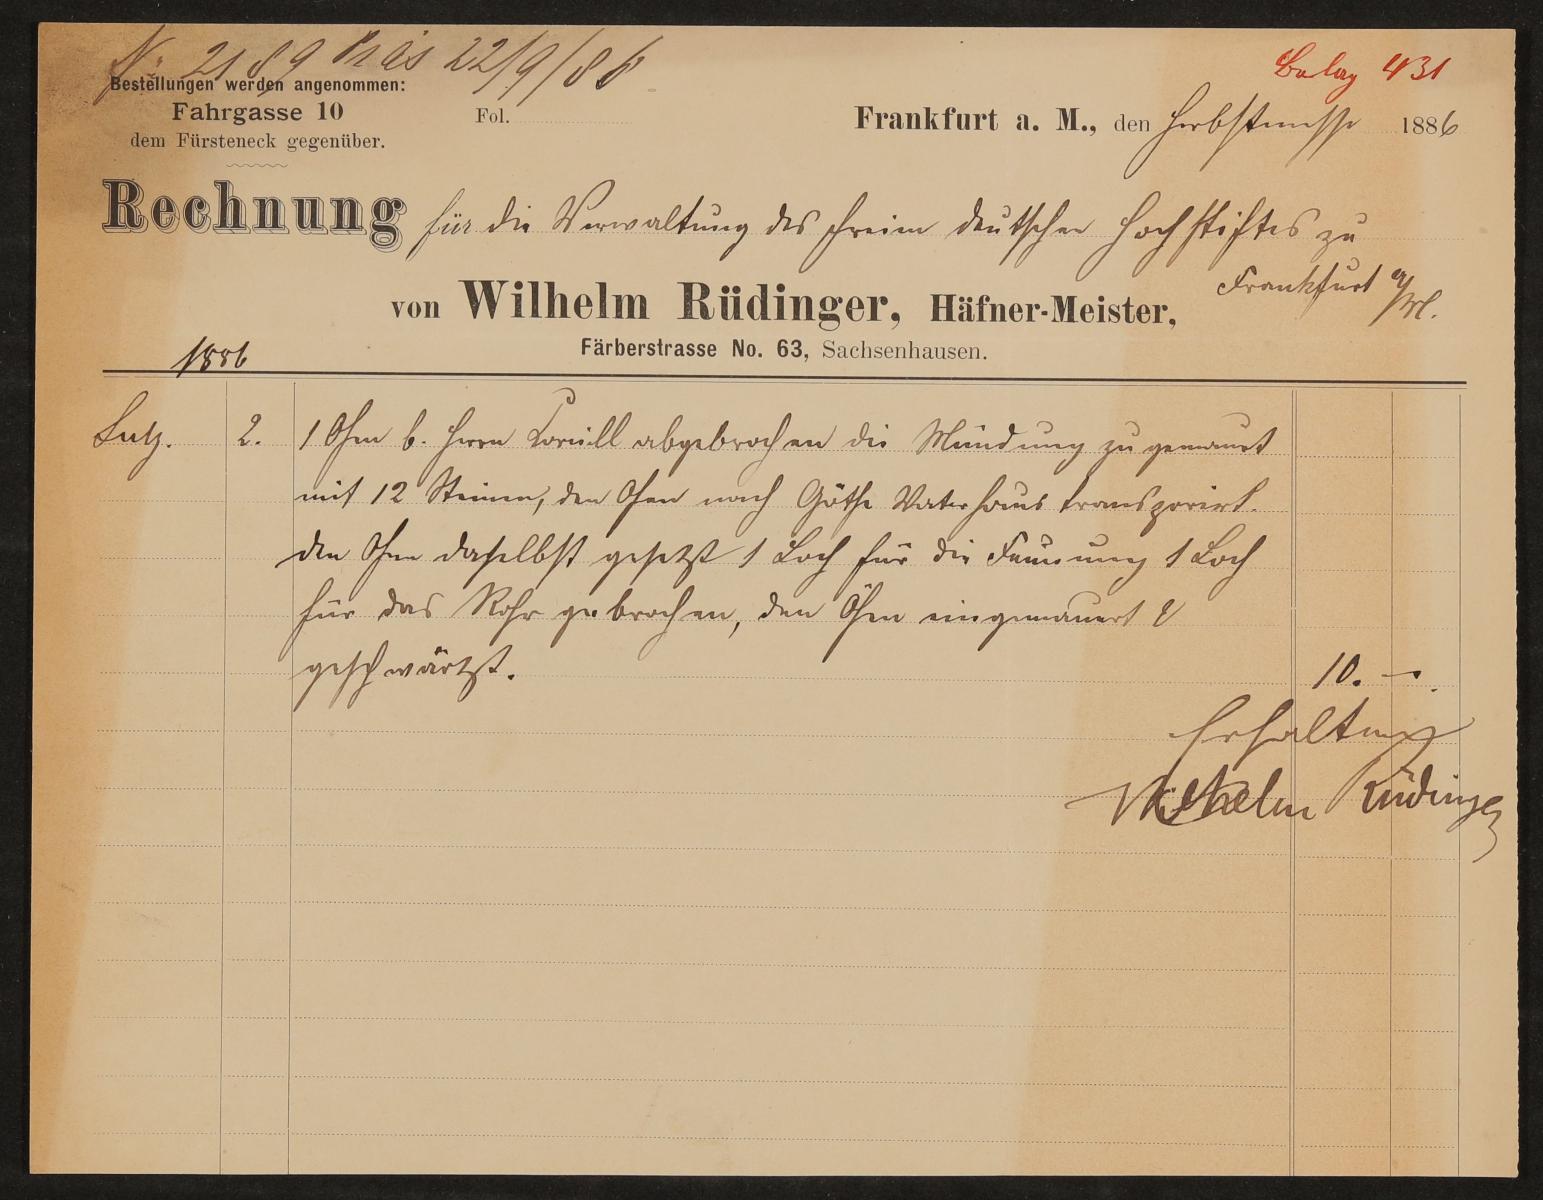 No 2189 Präs 22/9/86
Beleg 431
Bestellungen werden angenommen:
Fahrgasse 10
dem Fürsteneck gegenüber.
Fol.
Frankfurt a. M., den Herbstmesse 1886
Rechnung für die Verwaltung des freien deutschen Hochstiftes zu
Frankfurt a/M.
von Wilhelm Rüdinger, Häfner-Meister,
Färberstrasse No. 63, Sachsenhausen.
1886
Sptz. 2. 1 Ofen b. Herrn Cornill abgebrochen die Mündung zu gemauert
mit 12 Steinen, den Ofen nach Göthe Vaterhaus transporirt.
den Ofen daselbst gesetzt 1 Loch für die Feuerung 1 Loch
für das Rohr gebrochen, den Ofen eingemauert &
geschwärtzt. 10. —.
Erhalten
Wilhelm Rüdinger